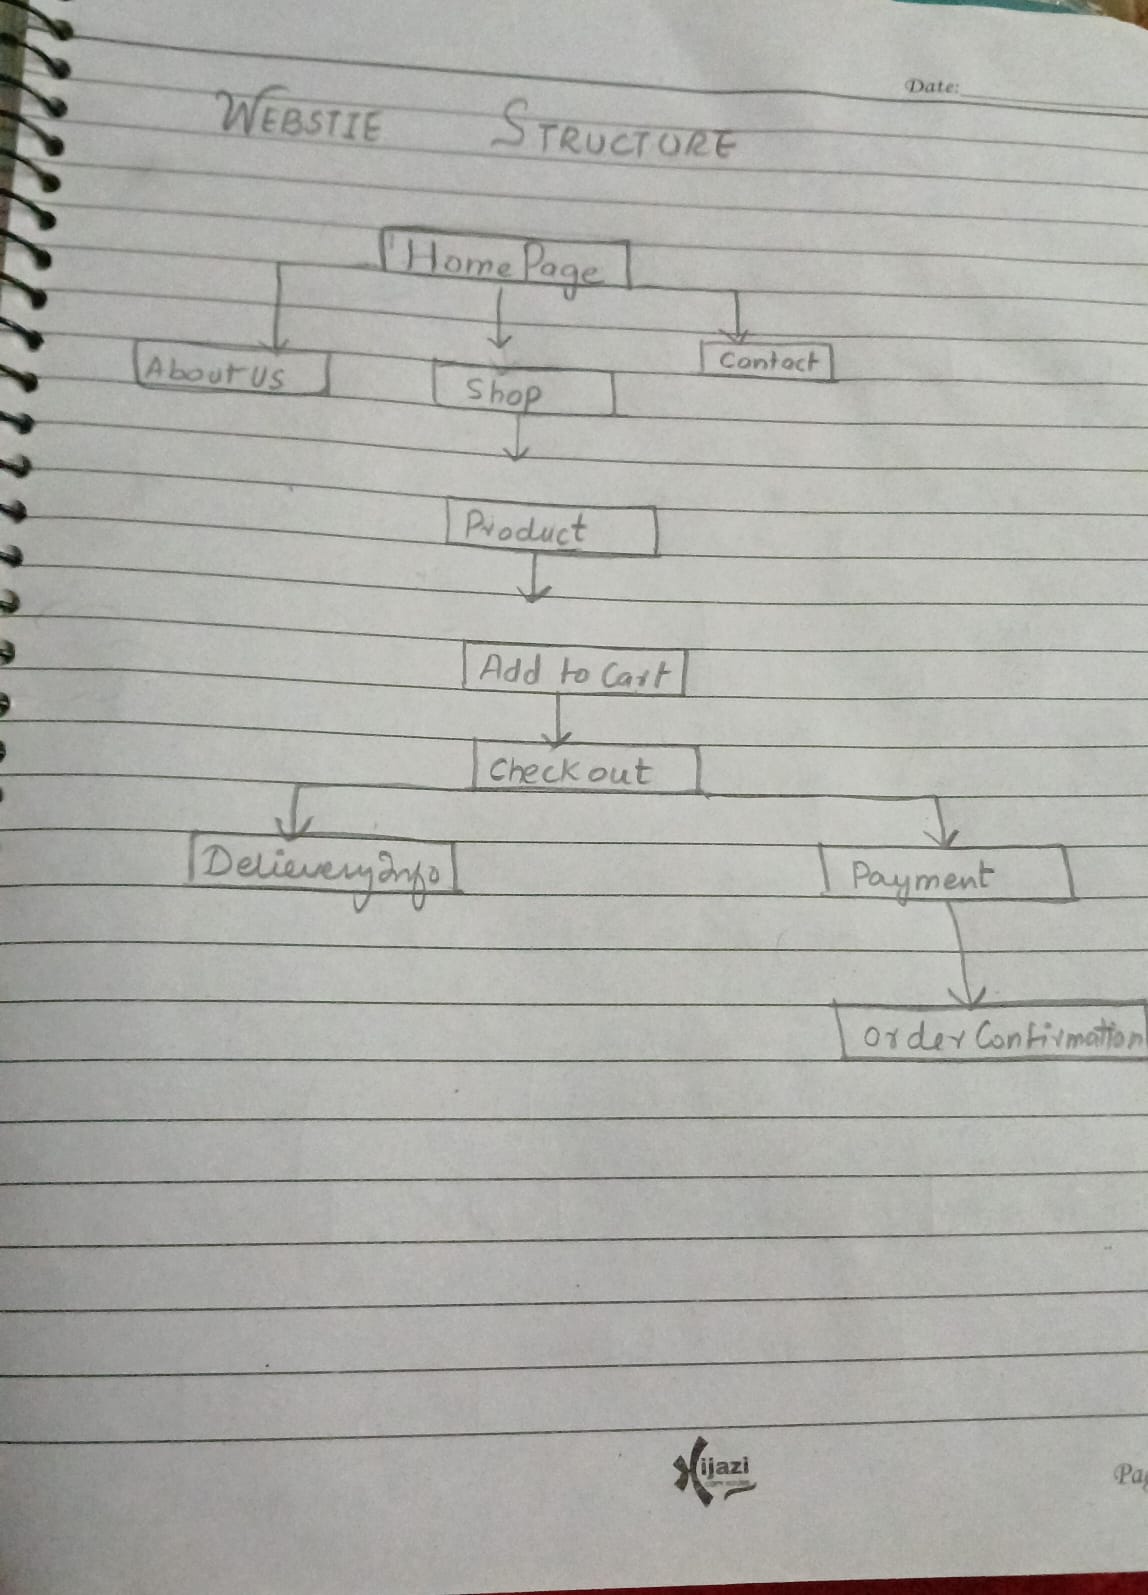 Date:
WEBSTIE STRUCTORE
Home Page
About Us
Shop
Contact
Product
Add to Cart
Check out
Delievery Info
Payment
Order Confirmation
Hijazi
Pag